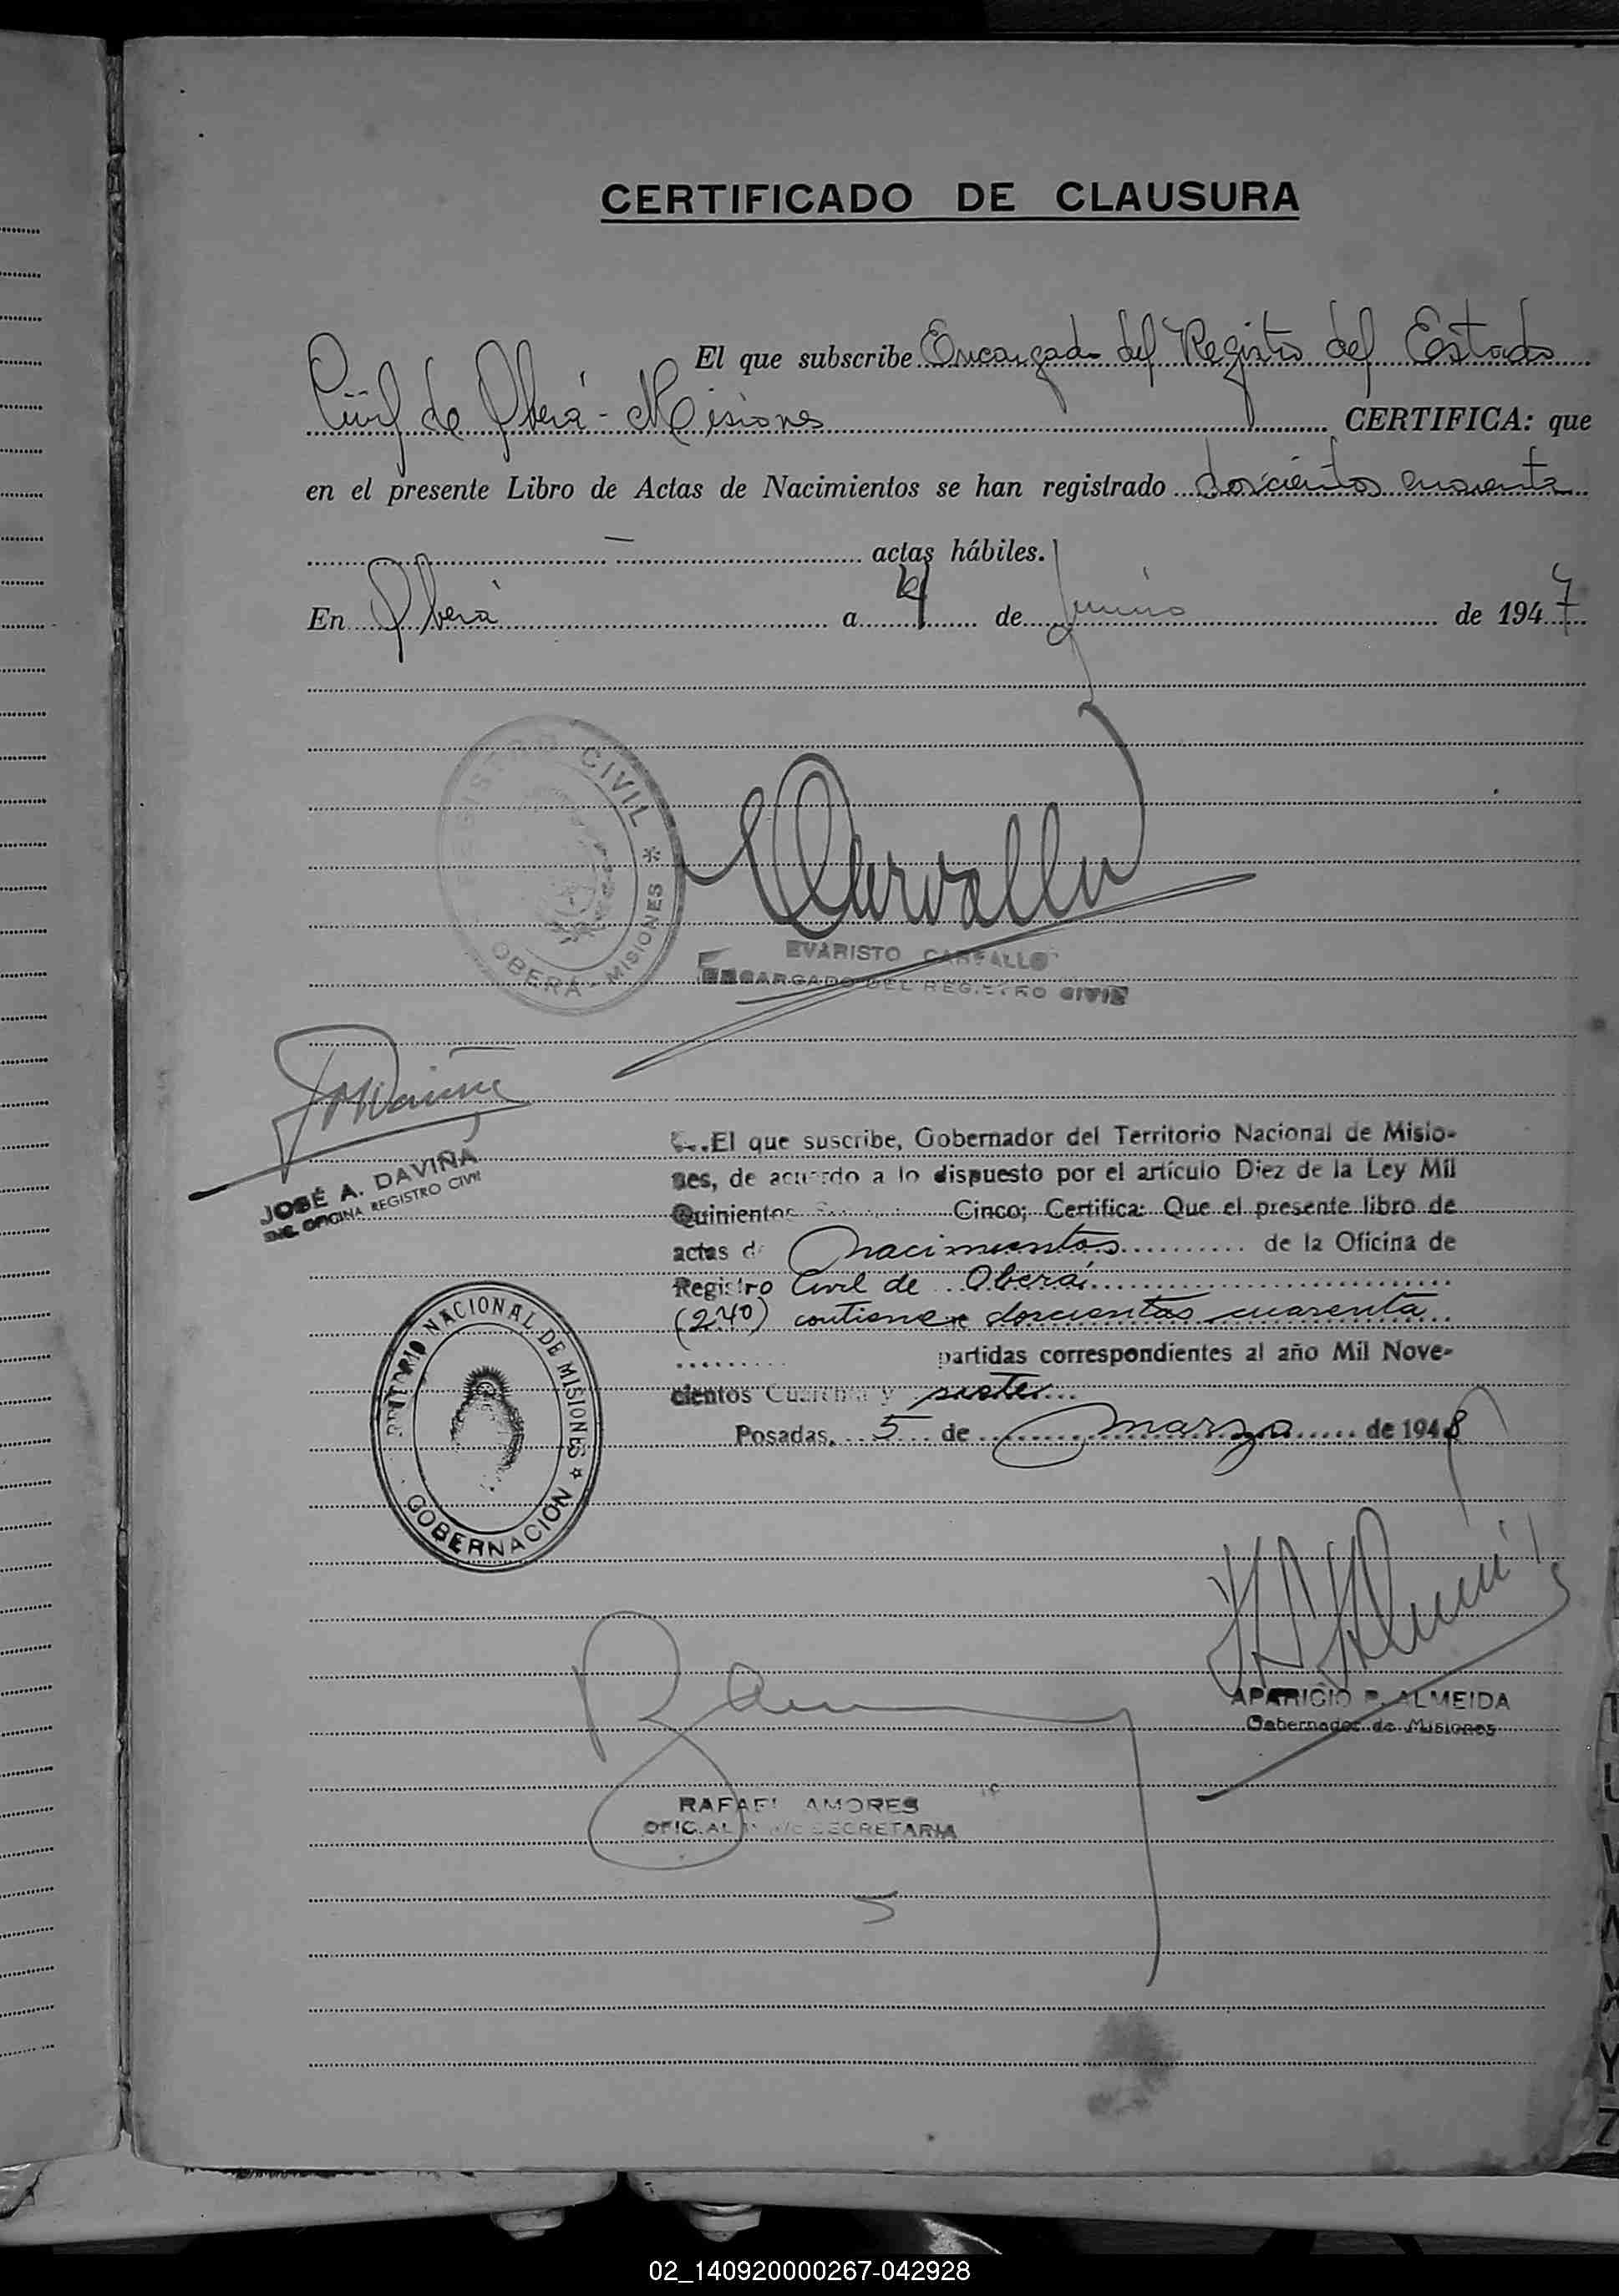 CERTIFICADO DE CLAUSURA
El que subscribe Encargado del Registro del Estado
Civil de Oberá - Misiones CERTIFICA: que
en el presente Libro de Actas de Nacimientos se han registrado doscientos cuarenta
— actas hábiles.
En Oberá a 4 de junio de 1947
CIVIL *
OBERÁ - MISIONES
ECarvallo
EVARISTO CARVALLO
ENCARGADO DEL REGISTRO CIVIL
JOSÉ A. DAVIÑA
ENC. OFICINA REGISTRO CIVIL
El que suscribe, Gobernador del Territorio Nacional de Misio-
nes, de acuerdo a lo dispuesto por el artículo Diez de la Ley Mil
Quinientos Cinco; Certifica: Que el presente libro de
actas de nacimientos de la Oficina de
Registro Civil de Oberá
(240) contiene doscientas cuarenta
partidas correspondientes al año Mil Nove-
cientos Cuarenta y siete
Posadas, 5 de marzo de 1948
TERRITORIO NACIONAL DE MISIONES
GOBERNACIÓN
APARICIO P. ALMEIDA
Gobernador de Misiones
RAFAEL AMORES
OFICIAL SECRETARIA
T
U
V
W
X
Y
Z
02_140920000267-042928